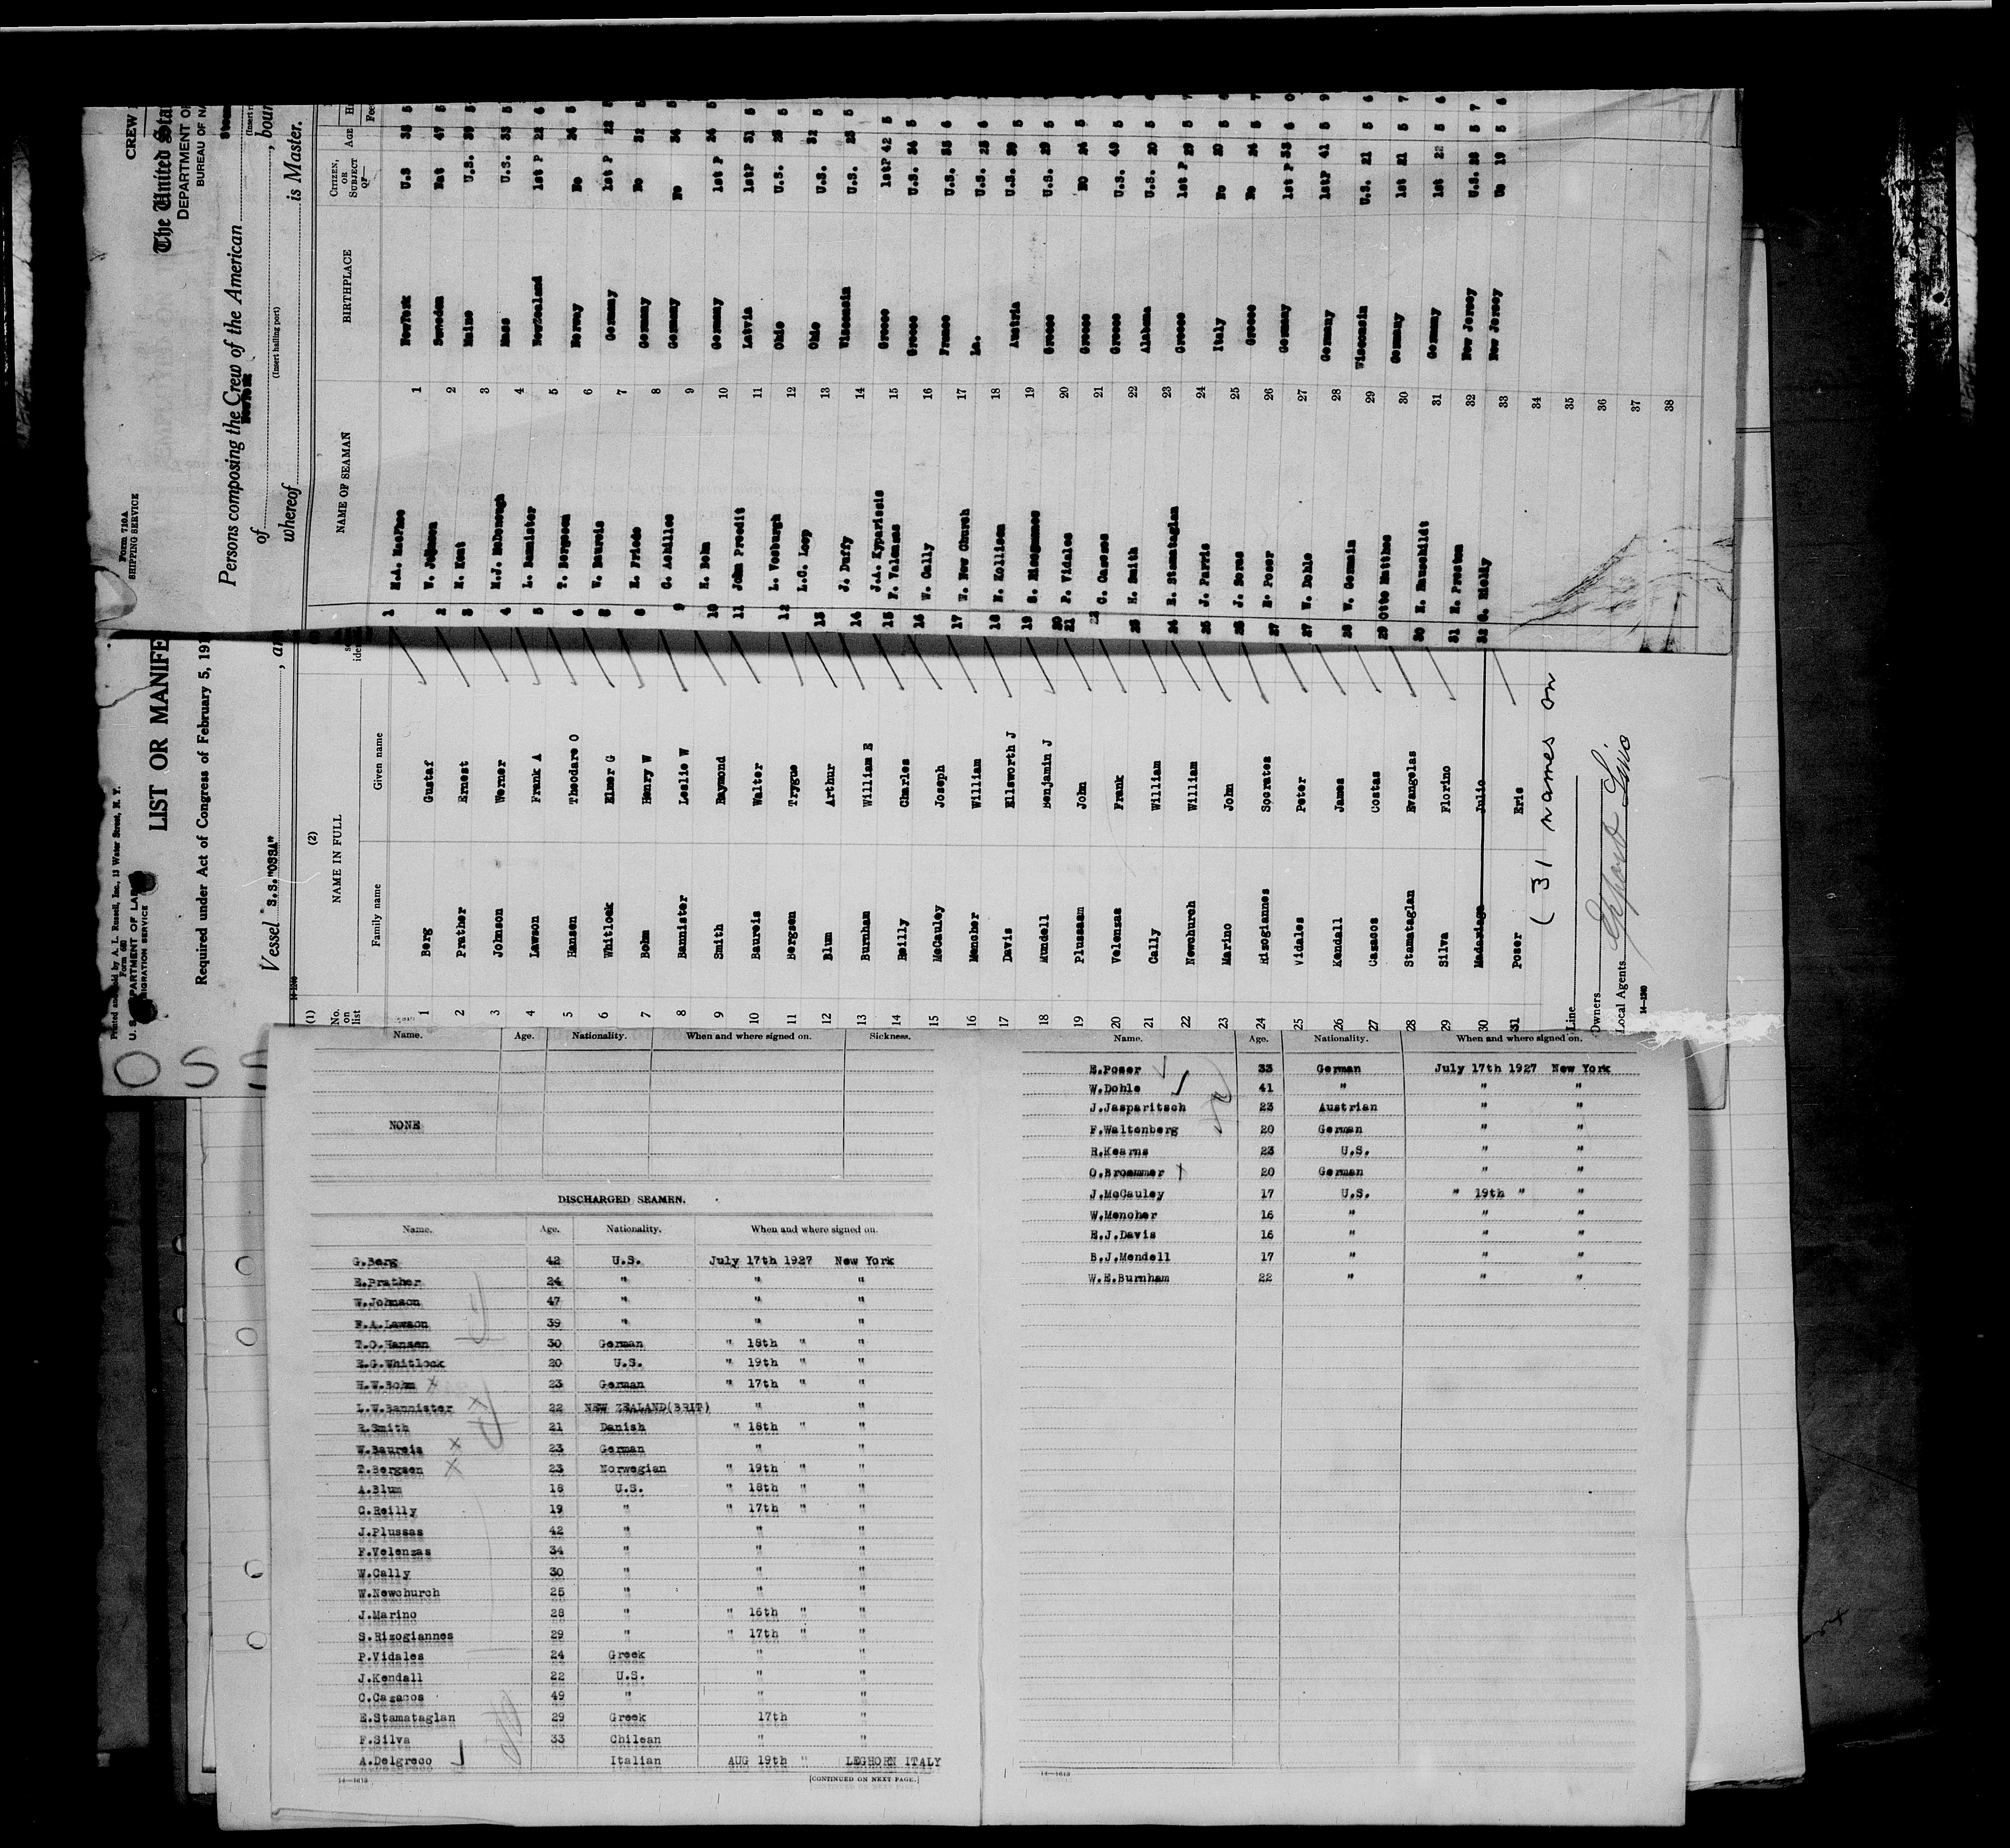 Form 710A
SHIPPING SERVICE
CREW
The United Sta
DEPARTMENT OF
BUREAU OF NA
Persons composing the Crew of the American
of New York, bour
(Insert hailing port)
whereof is Master.
NAME OF SEAMAN BIRTHPLACE CITIZEN, OR SUBJECT OF— AGE
1 H.A. MacPhee 1 NewYork U.S 38 5
2 W. Johnson 2 Sweden Nat 47 5
3 H. Kent 3 Maine U.S. 39 5
4 M.J. McDonough 4 Mass U.S. 33 5
5 L. Bannister 5 NewZealand 1st P 22 6
6 T. Bergsen 6 Norway No 24 5
W. Baureis 7 Germany 1st P 22 5
8 E. Friede 8 Germany No 32
9 C. Achilles 9 Germany No 24
10 H. Bohm 10 Germany 1st P 24 5
11 John Preedit 11 Latvia 1stP 31 5
12 L. Vosburgh 12 Ohio U.S. 25 5
13 L.C. Loop 13 Ohio U.S. 32 5
14 J. Duffy 14 Wisconsin U.S. 25 5
15 J.A. Kyparissis 15 Greece 1stP 42 5
16 F. Valensas 16 Greece U.S. 34 5
W. Cally 17 France U.S. 35 6
17 W. New Church 18 La. U.S. 25 6
18 N. Kollison 19 Austria U.S. 39 5
19 S. Risogannes 20 Greece U.S. 29 5
20 P. Vidales 21 Greece NO 24 5
C. Cassos 22 Greece U.S. 49 5
23 H. Smith 23 Alabama U.S. 20 5
24 E. Stamatagian 24 Greece 1st P 29 5
25 J. Parris 25 Italy No 20 5
26 J. Boras 26 Greece No 24 5
27 E. Poser 27 Germany 1st P 33 6
27 W. Dohle 28 Germany 1stP 41 5
28 W. Cormain 29 Wisconsin U.S. 21 5
29 Otto Matthes 30 Germany 1st 21 5
30 H. Rauschildt 31 Germany 1st 22 5
31 H. Preston 32 New Jersey U.S. 28 5
32 C. Rielly 33 New Jersey Us 19 5
34
35
36
37
38
Printed and sold by A. L. Russell, Inc., 13 Water Street, N. Y.
Form 680
U. S. DEPARTMENT OF LABOR
IMMIGRATION SERVICE
LIST OR MANIFE
Required under Act of Congress of February 5, 191
Vessel S.S."OSSA", ar
14-1240
(1) (2)
No. on list NAME IN FULL
Family name Given name
1 Berg Gustaf
2 Prather Ernest
3 Johnson Werner
4 Lawson Frank A
5 Hansen Theodare O
6 Whitlock Elmer G
7 Bohm Henry W
8 Bannister Leslie W
9 Smith Raymond
10 Baureis Walter
11 Bergsen Trygue
12 Blum Arthur
13 Burnham William E
14 Reilly Charles
15 McCauley Joseph
16 Mencher William
17 Davis Ellsworth J
18 Mundell Benjamin J
19 Plussasm John
20 Velenzas Frank
21 Cally William
22 Newchurch William
23 Marino John
24 Rizogiannes Socrates
25 Vidales Peter
26 Kendall James
27 Cazacos Costas
28 Stamataglan Evangelas
29 Silva Florino
30 Madariaga Julio
31 Poser Eris
( 31 names on
Line
Owners
Local Agents
14-1240
OSS
Name. Age. Nationality. When and where signed on. Sickness.
NONE
DISCHARGED SEAMEN.
Name. Age. Nationality. When and where signed on.
G.Berg 42 U.S. July 17th 1927 New York
E.Prather 24 " " "
W.Johnson 47 " " "
F.A.Lawson 39 " " "
T.O.Hansen 30 German " 18th " "
E.G.Whitlock 20 U.S. " 19th " "
H.W.Bohm x 23 German " 17th " "
L.W.Bannister x 22 NEW ZEALAND(BRIT) " "
R.Smith 21 Danish " 18th " "
W.Baureis x 23 German " "
T.Bergsen x 23 Norwegian " 19th " "
A.Blum 18 U.S. " 18th " "
C.Reilly 19 " " 17th " "
J.Plussas 42 " " "
F.Velenzas 34 " " "
W.Cally 30 " " "
W.Newchurch 25 " " "
J.Marino 28 " " 16th " "
S.Rizogiannes 29 " " 17th " "
P.Vidales 24 Greek " "
J.Kendall 22 U.S. " "
C.Cazacos 49 " " "
E.Stamataglan 29 Greek 17th "
F.Silva 33 Chilean " "
A.Delgreco Italian AUG 19th " LEGHORN ITALY
14—1613 [CONTINUED ON NEXT PAGE.]
Name. Age. Nationality. When and where signed on.
E.Poser 33 German July 17th 1927 New York
W.Dohle 41 " " "
J.Jasparitsch 23 Austrian " "
F.Waltenberg 20 German " "
R.Kearns 23 U.S. " "
O.Broemmer x 20 German " "
J.McCauley 17 U.S. " 19th " "
W.Menoher 16 " " "
E.J.Davis 16 " " "
B.J.Mendell 17 " " "
W.E.Burnham 22 " " "
14—1613